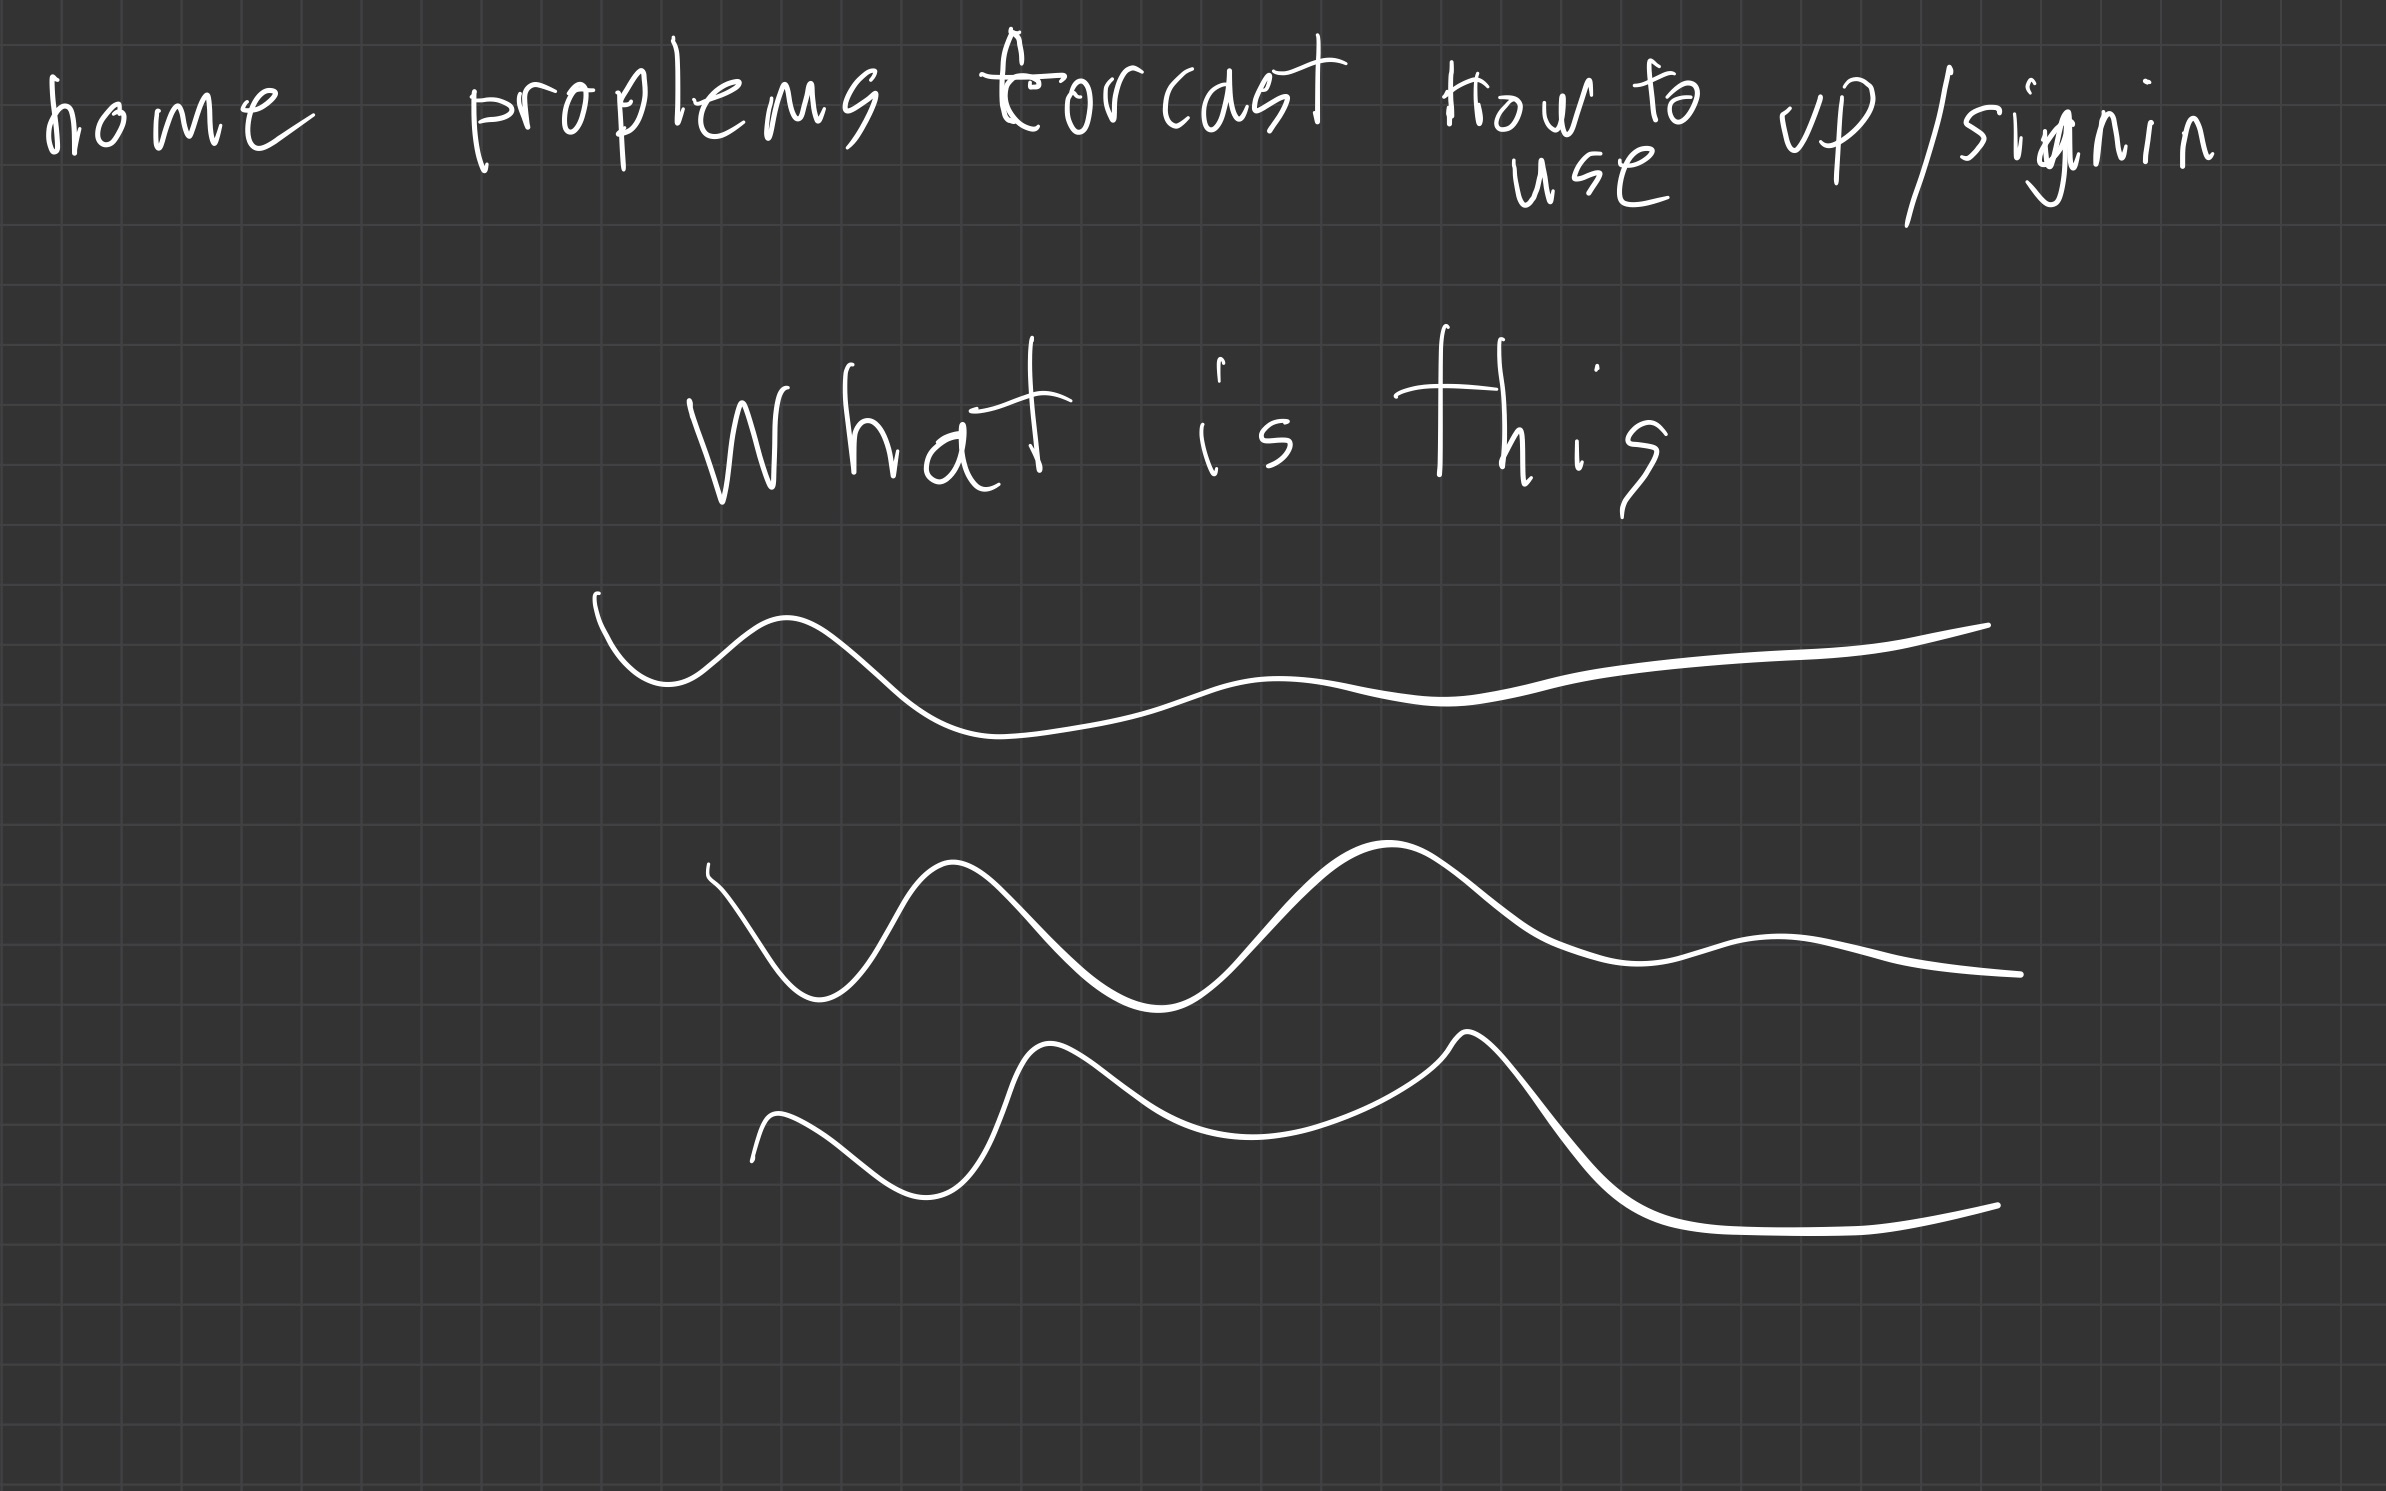 home proplems forcast how to up/signin
use
What is this